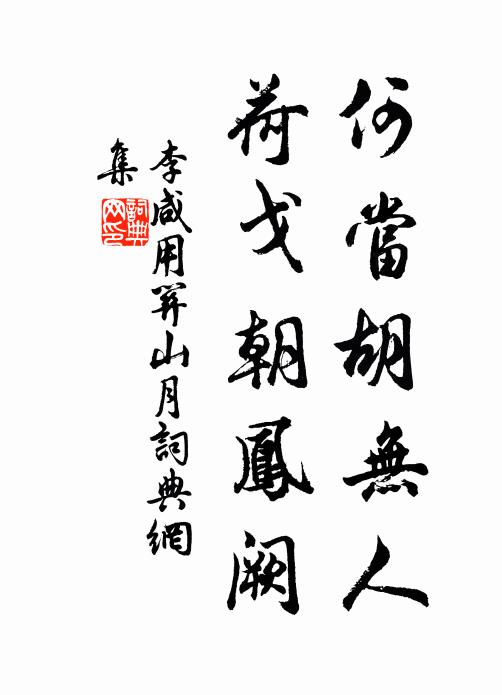 何當胡無人
荷戈朝鳳闕
李咸用關山月詞典網
集
詞典網印